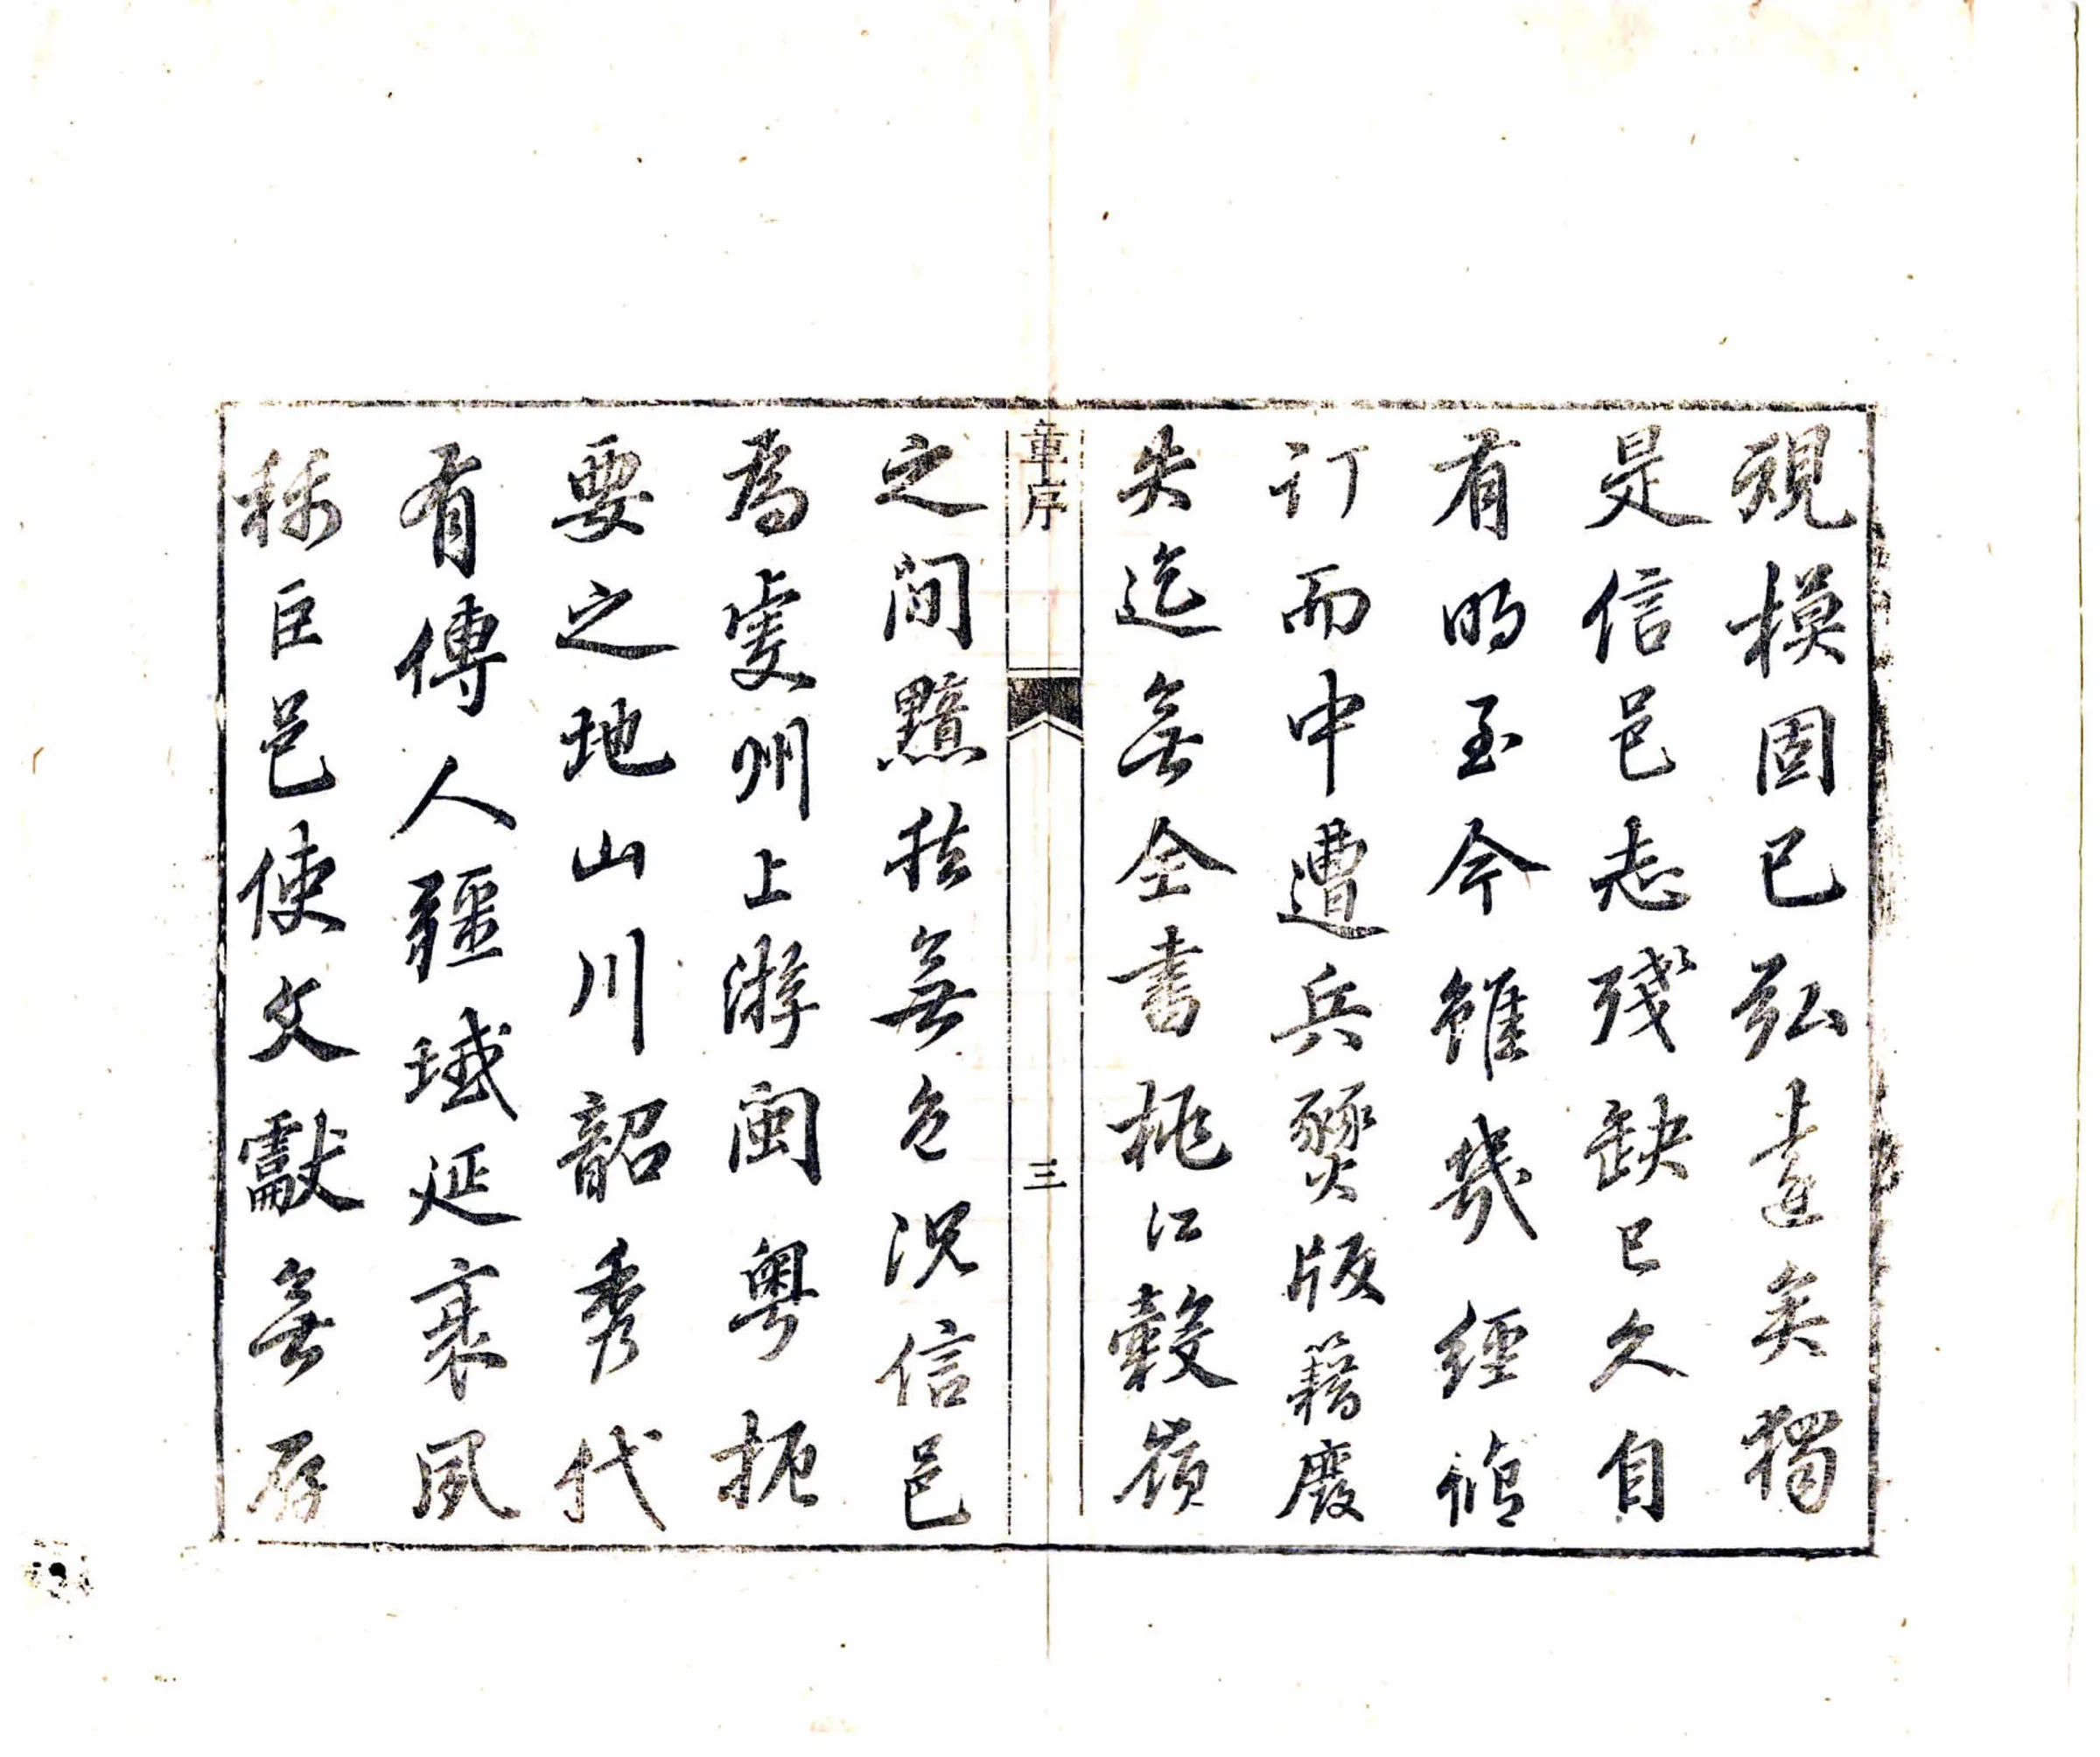 規模固已弘遠矣獨
是信邑志殘缺已久自
有明至今雖幾經脩
訂而中遭兵燹版籍廢
失迄無全書桃江穀嶺
之間黯然無色況信邑
為虔州上游閩粵扼
要之地山川韶秀代
有傳人疆域延袤夙
稱巨邑使文獻無存
序
三